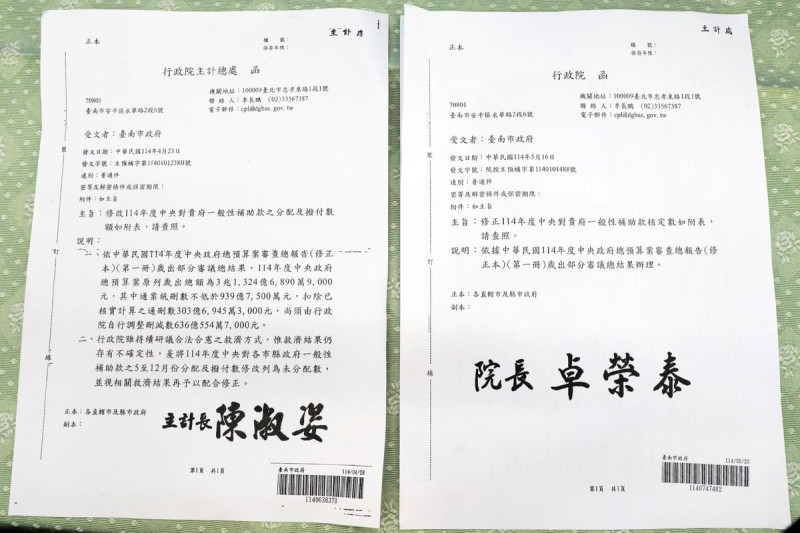 主計處
正本
檔　號：
保存年限：
行政院主計總處　函
機關地址：100009臺北市忠孝東路1段1號
聯 絡 人：李長鵬 (02)33567387
電子郵件：cpl@dgbas.gov.tw
70801
臺南市安平區永華路2段6號
受文者：臺南市政府
發文日期：中華民國114年4月23日
發文字號：主預補字第1140101238B號
速別：普通件
密等及解密條件或保密期限：
附件：如主旨
主旨：修改114年度中央對貴府一般性補助款之分配及撥付數
額如附表，請查照。
說明：
一、依中華民國114年度中央政府總預算案審查總報告(修正
本)(第一冊)歲出部分審議總結果，114年度中央政府
總預算案原列歲出總額為3兆1,324億6,890萬9,000
元，其中通案統刪數不低於939億7,500萬元，扣除已
核實計算之通刪數303億6,945萬3,000元，尚須由行政
院自行調整刪減數636億554萬7,000元。
二、行政院雖持續研議合法合憲之救濟方式，惟救濟結果仍
存有不確定性，爰將114年度中央對各市縣政府一般性
補助款之5至12月份分配及撥付數修改列為未分配數，
並視相關救濟結果再予以配合修正。
正本：各直轄市政府及縣市政府
副本：
主計長 陳淑姿
裝
訂
線
第1頁　共1頁
臺南市政府　114/04/28
1140636370
主計處
正本
檔　號：
保存年限：
行政院　函
機關地址：100009臺北市忠孝東路1段1號
聯 絡 人：李長鵬 (02)33567387
電子郵件：cpl@dgbas.gov.tw
70801
臺南市安平區永華路2段6號
受文者：臺南市政府
發文日期：中華民國114年5月16日
發文字號：院授主預補字第1140101488號
速別：普通件
密等及解密條件或保密期限：
附件：如主旨
主旨：修正114年度中央對貴府一般性補助款核定數如附表，
請查照。
說明：依據中華民國114年度中央政府總預算案審查總報告(修
正本)(第一冊)歲出部分審議總結果辦理。
正本：各直轄市及縣市政府
副本：
院長 卓榮泰
裝
訂
線
第1頁　共1頁
臺南市政府　114/05/20
1140747402